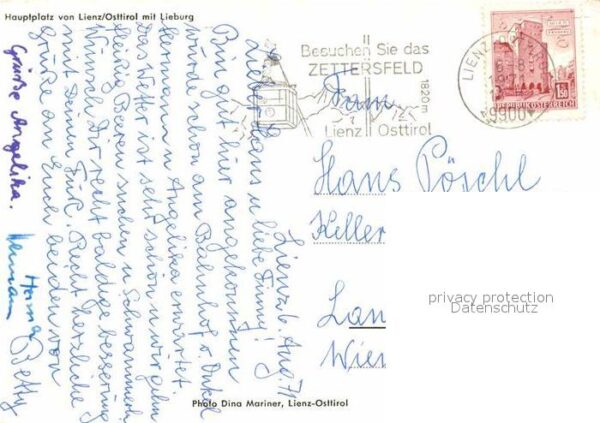 Hauptplatz von Lienz/Osttirol mit Lieburg
Besuchen Sie das
ZETTERSFELD
1820m
Lienz Osttirol
LIENZ
9900
REPUBLIK ÖSTERREICH
1.50
Lienz 6. Aug. 71
Lieber Hans u liebe Finny!
Bin gut hier angekommen
wurde schon am Bahnhof v. Onkel
Hermann u Angelika erwartet.
Das Wetter ist sehr schön u wir gehn
fleißig Beeren suchen u Schwammerln
Wünsch Dir recht baldige besserung
mit Dein Fuß. Recht herzliche
Grüße an Euch beiden von
Betty
Herma
Hermann
Grüße Angelika.
Fam
Hans Pöschl
Keller
Lan
Wien
privacy protection
Datenschutz
Photo Dina Mariner, Lienz-Osttirol